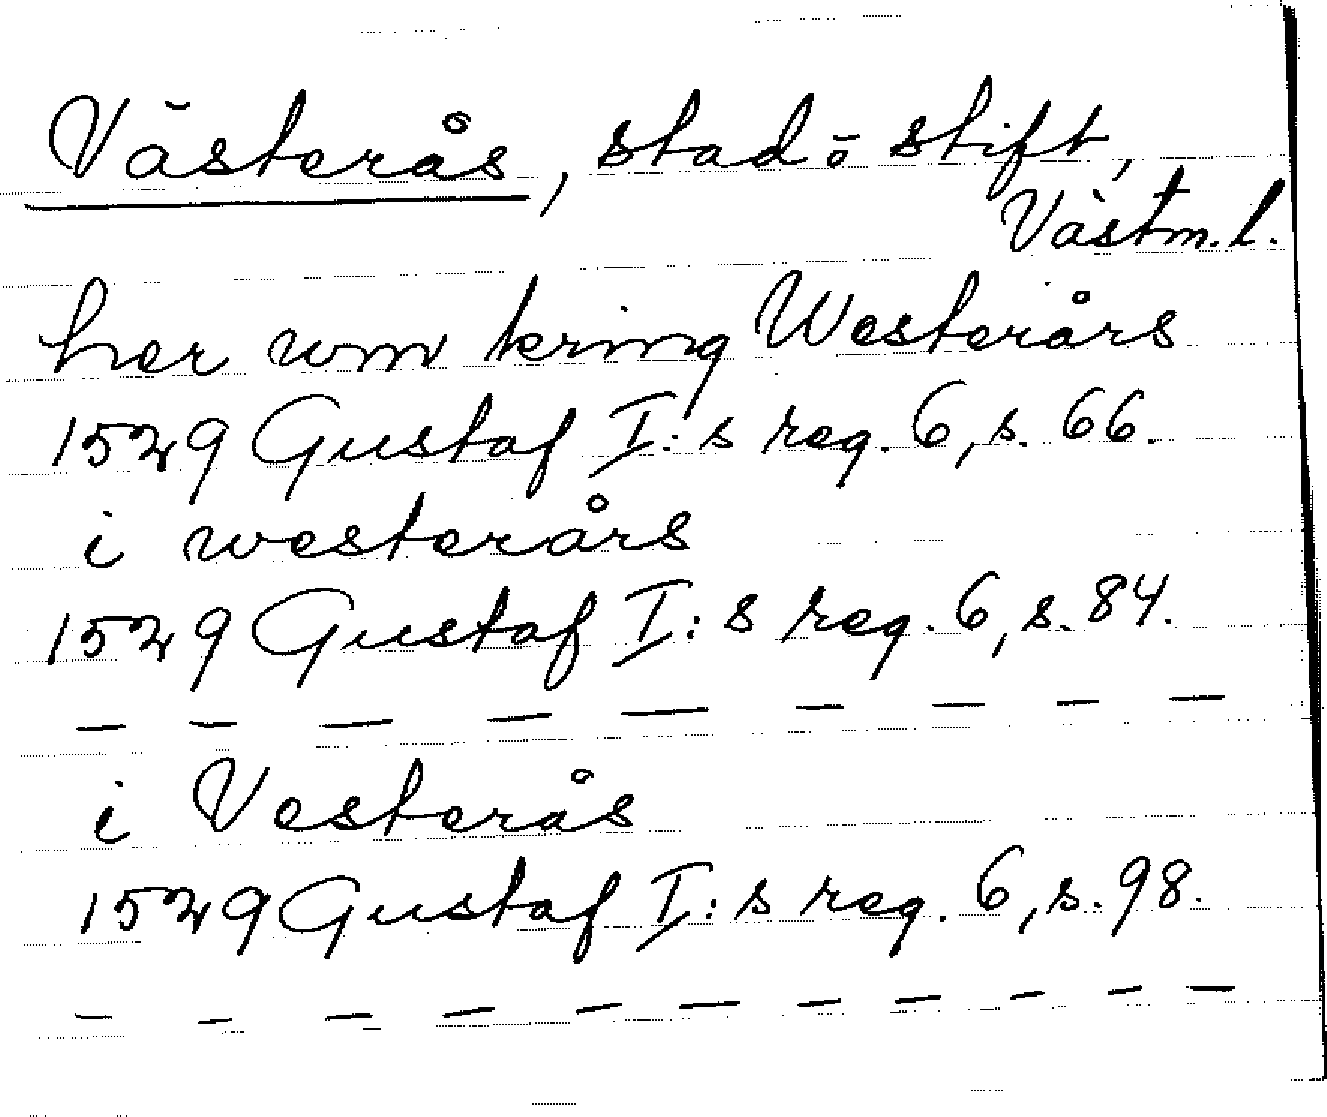 Västerås, stad o stift,
Västm. l.
her wm kring Westerårs
1529 Gustaf I:s reg. 6, s. 66.
i westerårs
1529 Gustaf I:s reg. 6, s. 84.
— — — — — — — — —
i Vesterås
1529 Gustaf I:s reg. 6, s. 98.
— — — — — — — — — —